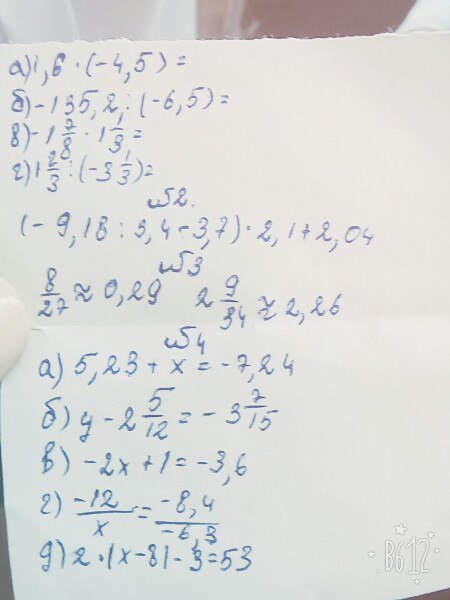 а) 1,6 · (-4,5) =
б) -135,2 : (-6,5) =
в) -1 7/8 · 1 1/3 =
г) 1 2/3 : (-3 1/3) =
№2.
(-9,18 : 3,4 - 3,7) · 2,1 + 2,04
№3
8/27 ≈ 0,29 2 9/34 ≈ 2,26
№4
а) 5,23 + x = -7,24
б) y - 2 5/12 = -3 7/15
в) -2x + 1 = -3,6
г) -12/x = -8,4/-6,3
д) 2 · |x - 8| - 3 = 53
B612